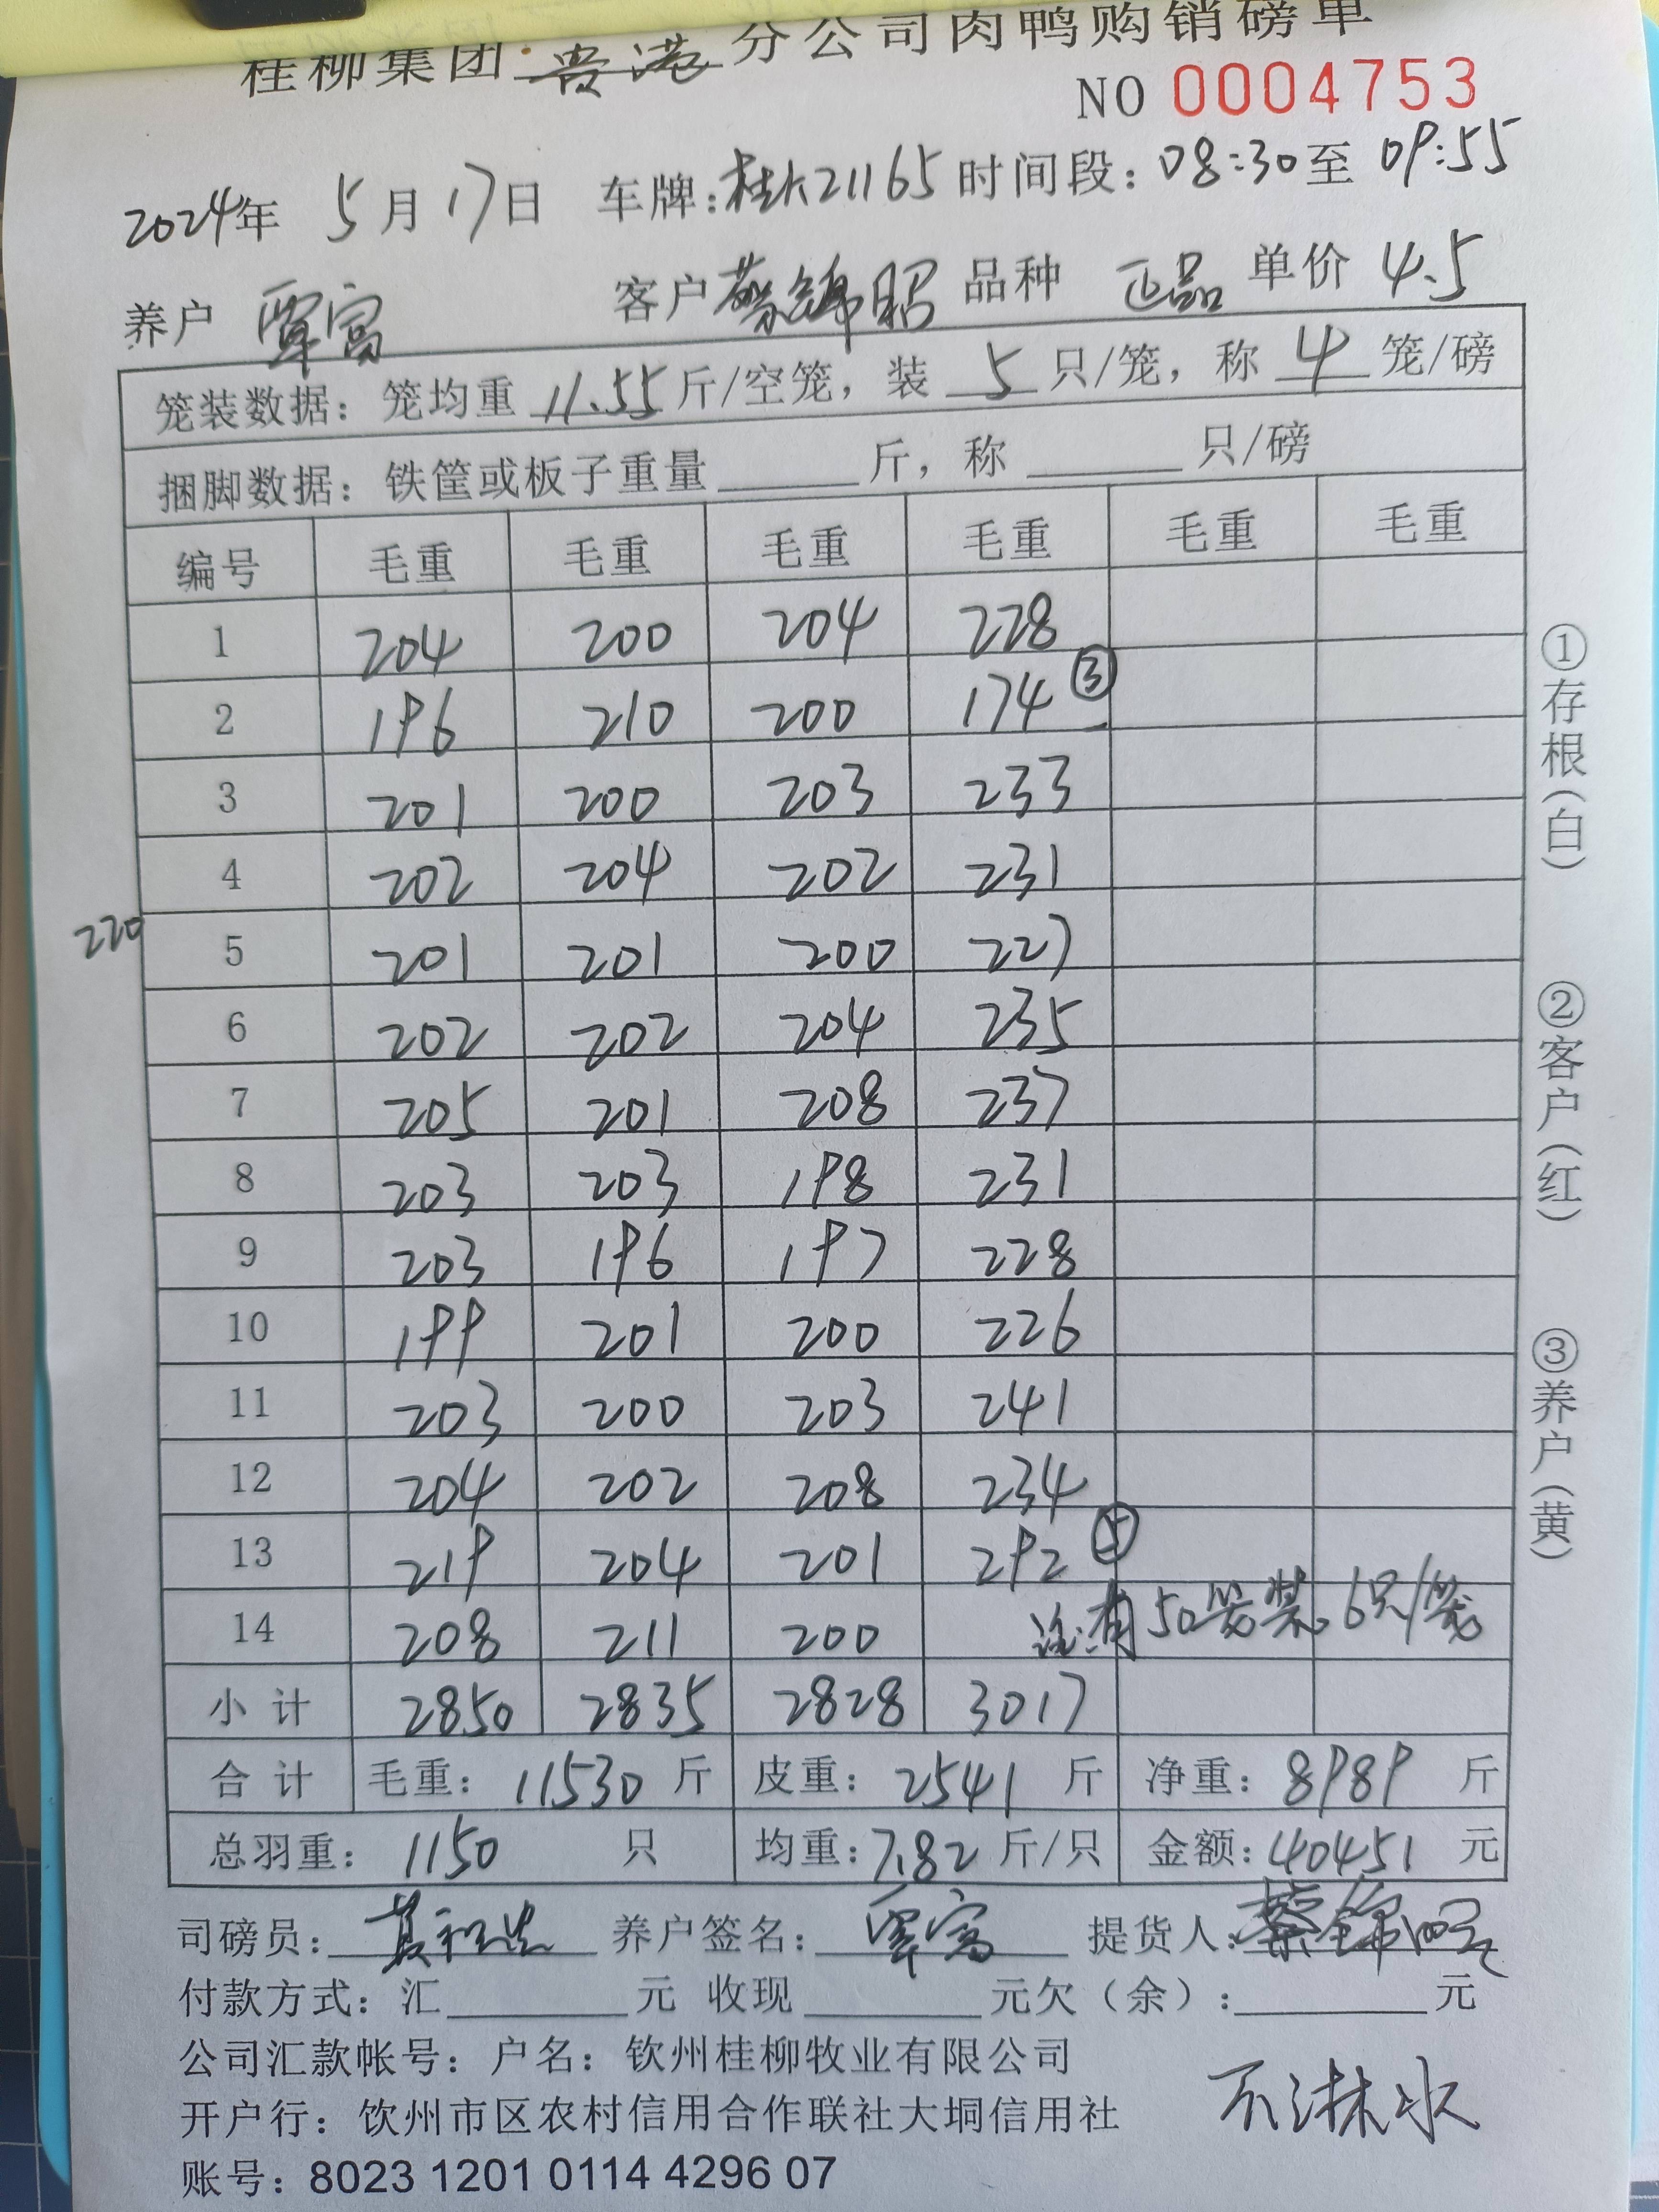 桂柳集团 贵港 分公司肉鸭购销磅单
NO 0004753
2024年 5月17日 车牌:桂K21165 时间段:08:30至 09:55
养户 覃富 客户 蔡锦昭 品种 正品 单价 4.5
笼装数据:笼均重 11.55 斤/空笼,装 5 只/笼,称 4 笼/磅
捆脚数据:铁筐或板子重量 斤,称 只/磅
编号 毛重 毛重 毛重 毛重 毛重 毛重
1 204 200 204 228
2 196 210 200 174 ③
3 201 200 203 233
4 202 204 202 231
220 5 201 201 200 227
6 202 202 204 235
7 205 201 208 237
8 203 203 198 231
9 203 196 197 228
10 199 201 200 226
11 203 200 203 241
12 204 202 208 234
13 219 204 201 292 ⑤
14 208 211 200 注:有50笼装6只/笼
小计 2850 2835 2828 3017
合计 毛重:11530 斤 皮重:2541 斤 净重:8989 斤
总羽重:1150 只 均重:7.82 斤/只 金额:40451 元
司磅员: 养户签名:覃富 提货人:蔡锦昭
付款方式:汇 元 收现 元欠(余): 元
公司汇款帐号:户名:钦州桂柳牧业有限公司
开户行:钦州市区农村信用合作联社大垌信用社
不淋水
账号:8023 1201 0114 4296 07
①存根(白) ②客户(红) ③养户(黄)